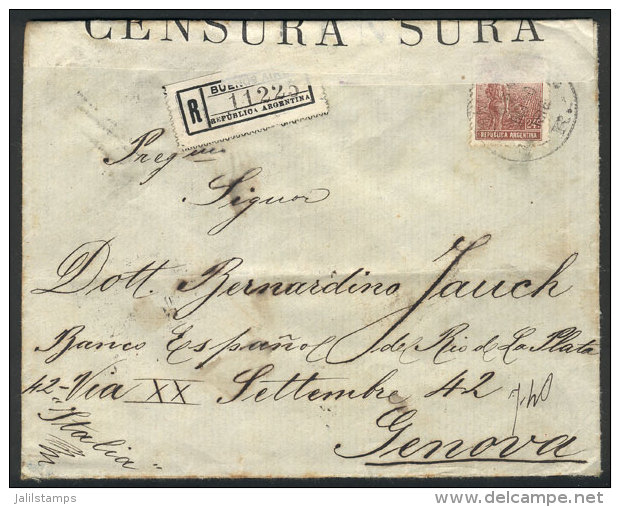 CENSURA SURA
BUENOS AIRES
R
11225
REPÚBLICA ARGENTINA
REPUBLICA ARGENTINA
Preg mo
Signor
Dott. Bernardino Jauch
Banco Español de Rio de La Plata
42 - Via XX Settembre 42
Genova
"Italia"
jalilstamps
www.delcampe.net